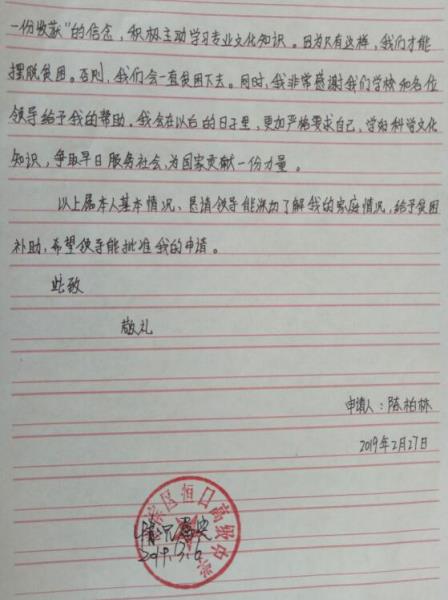 一份收获”的信念，积极主动学习专业文化知识。因为只有这样，我们才能
摆脱贫困。否则，我们会一直贫困下去。同时，我非常感谢我们学校和各位
领导给予我的帮助。我会在以后的日子里，更加严格要求自己，学好科学文化
知识，争取早日服务社会，为国家贡献一份力量。
以上属本人基本情况、恳请领导能深切了解我的家庭情况，给予贫困
补助，希望领导能批准我的申请。
此致
敬礼
申请人：陈柏林
2019年2月27日
滨区恒口高级中学
情况属实
2019.3.6